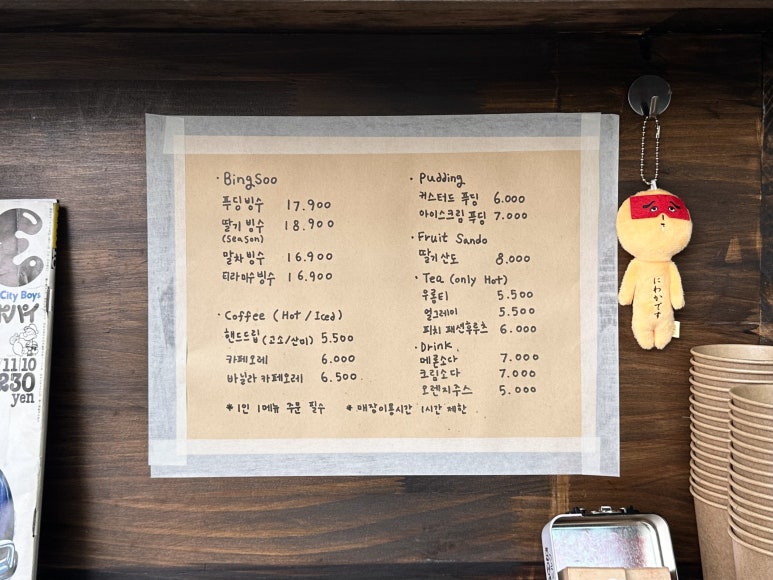 City Boys
ポパイ
11 10
230
yen
· BingSoo
푸딩빙수 17.900
딸기빙수 18.900
(season)
말차빙수 16.900
티라미수빙수 16.900
· Coffee (Hot / Iced)
핸드드립 (고소/산미) 5.500
카페오레 6.000
바닐라 카페오레 6.500
· Pudding
커스터드 푸딩 6.000
아이스크림 푸딩 7.000
· Fruit Sando
딸기산도 8.000
· Tea (only Hot)
우롱티 5.500
얼그레이 5.500
피치 패션후루츠 6.000
· Drink
메론소다 7.000
크림소다 7.000
오렌지주스 5.000
* 1인 1메뉴 주문 필수 * 매장이용시간 1시간 제한
にわかです